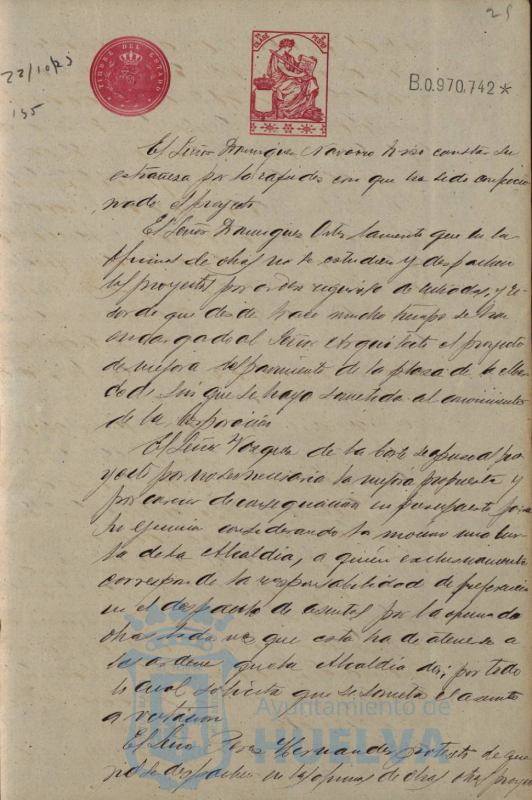 25
22/10/23
155
TIMBRE DEL ESTADO
B.0.970.742*
El Señor Dominguez Navarro hizo constar su
estrañeza por la rapidez con que ha sido confeccio
nado el proyecto
El Señor Dominguez Ortiz lamenta que en la
oficina de obras no se estudien y despachen
los proyectos por orden riguroso de entradas, y
de que desde hace mucho tiempo se
encargado al Señor Arquitecto el proyecto
de mejora del pavimento de la plaza de la
sin que se haya sometido al conocimiento
de la Corporación
El Señor Vazquez de la Corte se opuso al pro
yecto por no ser necesaria la mejora propuesta y
por carecer de consignación en presupuesto para
su ejecucion considerando la mocion una
la de la Alcaldia, a quien exclusivamente
corresponde la responsabilidad de preferencia
en el despacho de asuntos por la oficina de
obras toda vez que esta ha de atenerse a
las ordenes que la Alcaldia dé; por todo
lo cual solicita que se someta el asunto
a votación
El Señor Perez Hernandez protesta de que
no se despachen en las oficinas de obras otros proyec
Ayuntamiento de
HUELVA